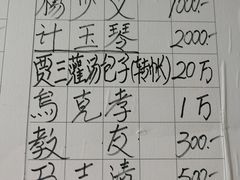 杨少文 1000.-
计玉琴 2000.-
贾三灌汤包子(转帐) 20万
马克孝 1万
教友 300.-
500.-